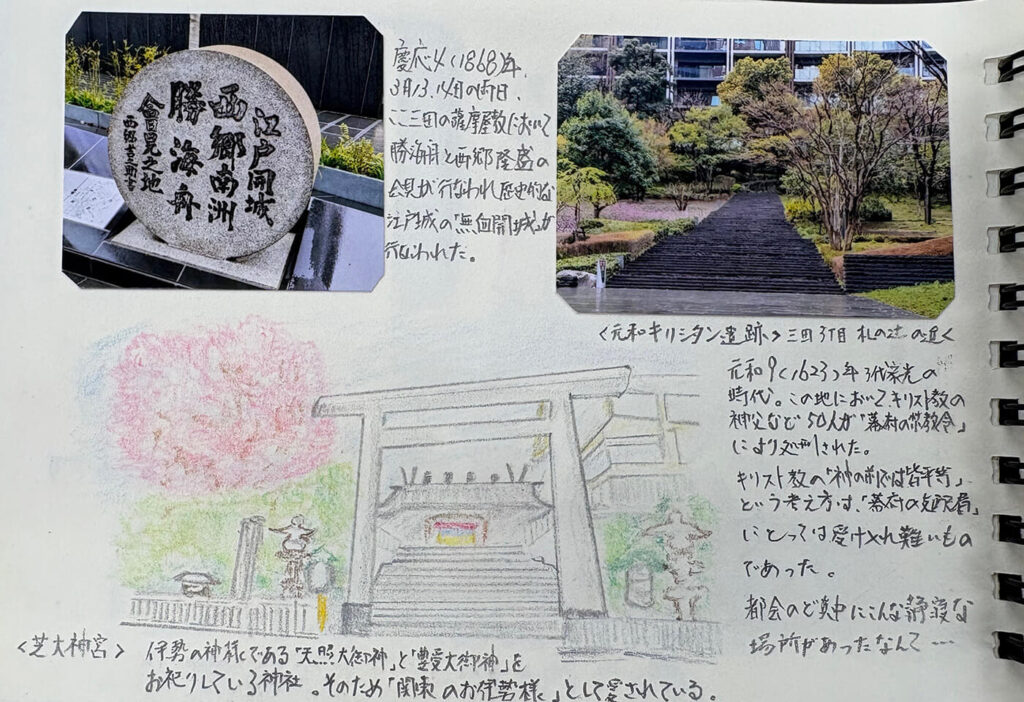 江戸開城
西郷南洲
勝海舟
會見之地
西郷吉之助書
慶応4(1868)年、
3月13、14日の両日、
ここ三田の薩摩屋敷において
勝海舟と西郷隆盛の
会見が行なわれ歴史的な
江戸城の「無血開城」が
行なわれた。
<元和キリシタン遺跡> 三田3丁目 札の辻の近く
元和9(1623)年 3代家光の
時代。この地においてキリスト教の
神父など50人が「幕府の禁教令」
により処刑された。
キリスト教の「神の前では皆平等」
という考え方は、「幕府の支配者」
にとっては受け入れ難いもの
であった。
都会のど真中にこんな静寂な
場所があったなんて…
<芝大神宮> 伊勢の神様である「天照大御神」と「豊受大御神」を
お祀りしている神社。そのため「関東のお伊勢様」として愛されている。